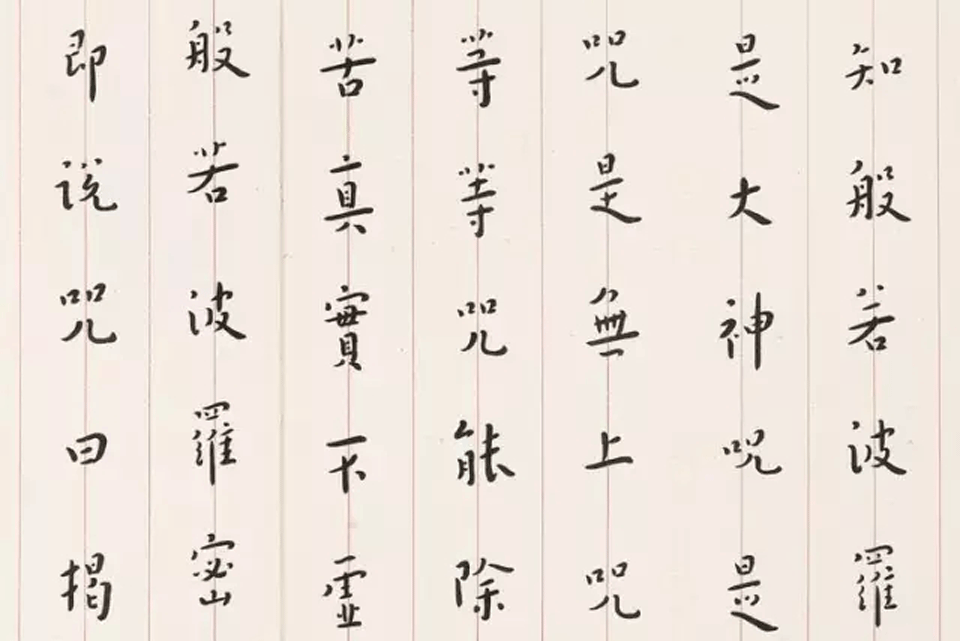 知般若波羅
是大神咒是
咒是無上咒
等等咒能除
苦真實不虛
般若波羅密
即說咒曰揭